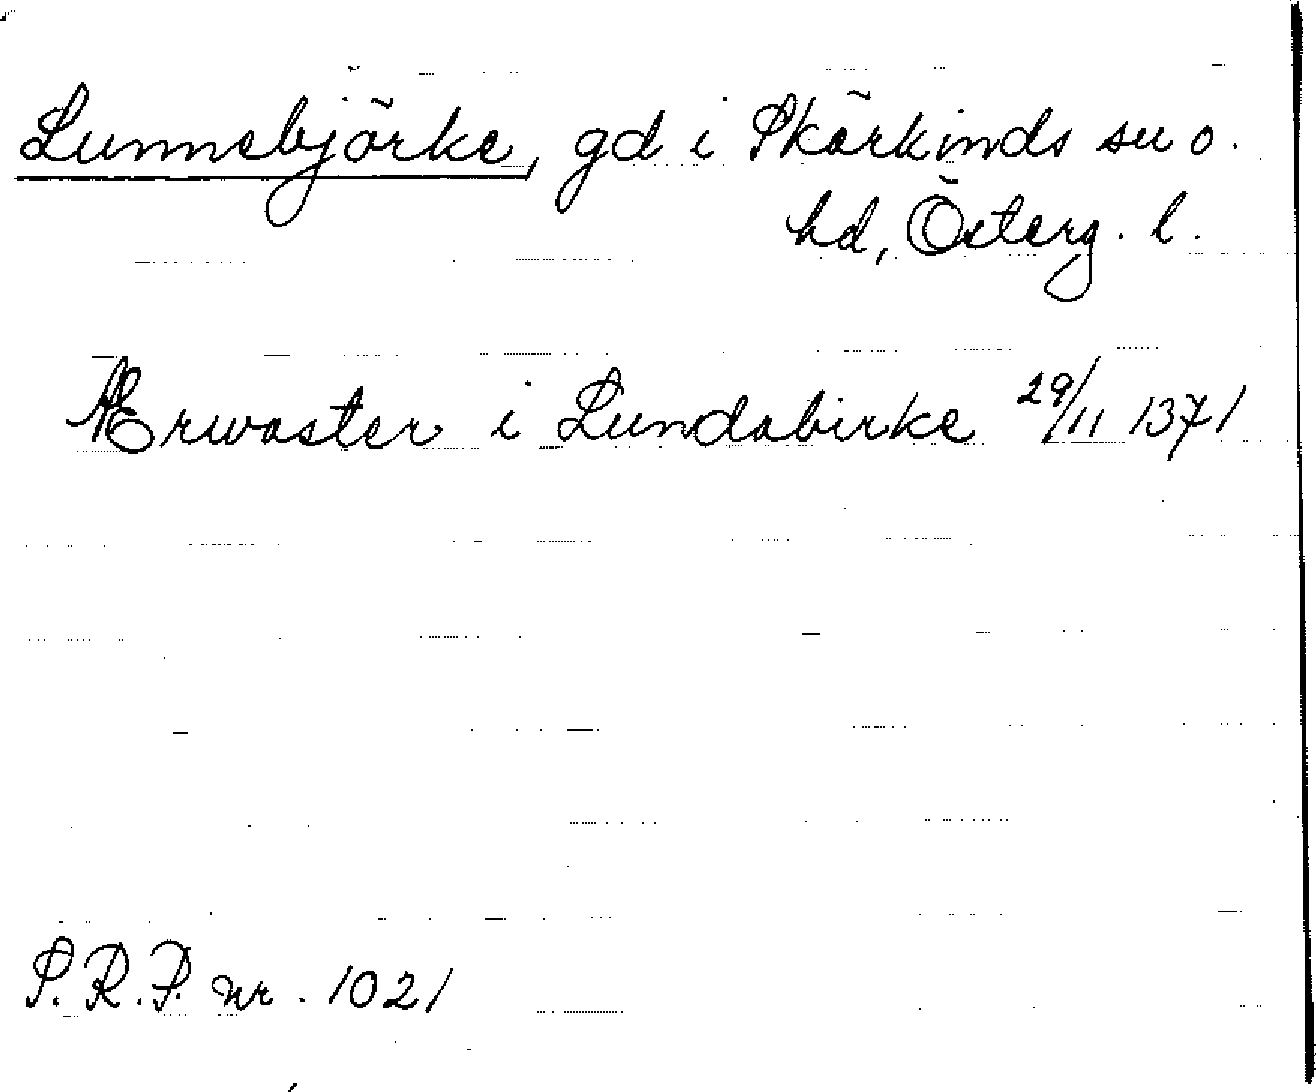 Lunnebjörke, gd i Skärkinds sn o.
hd, Österg. l.
Ærwaster i Lundabirke 29/11 1371
S.R.P. nr. 1021